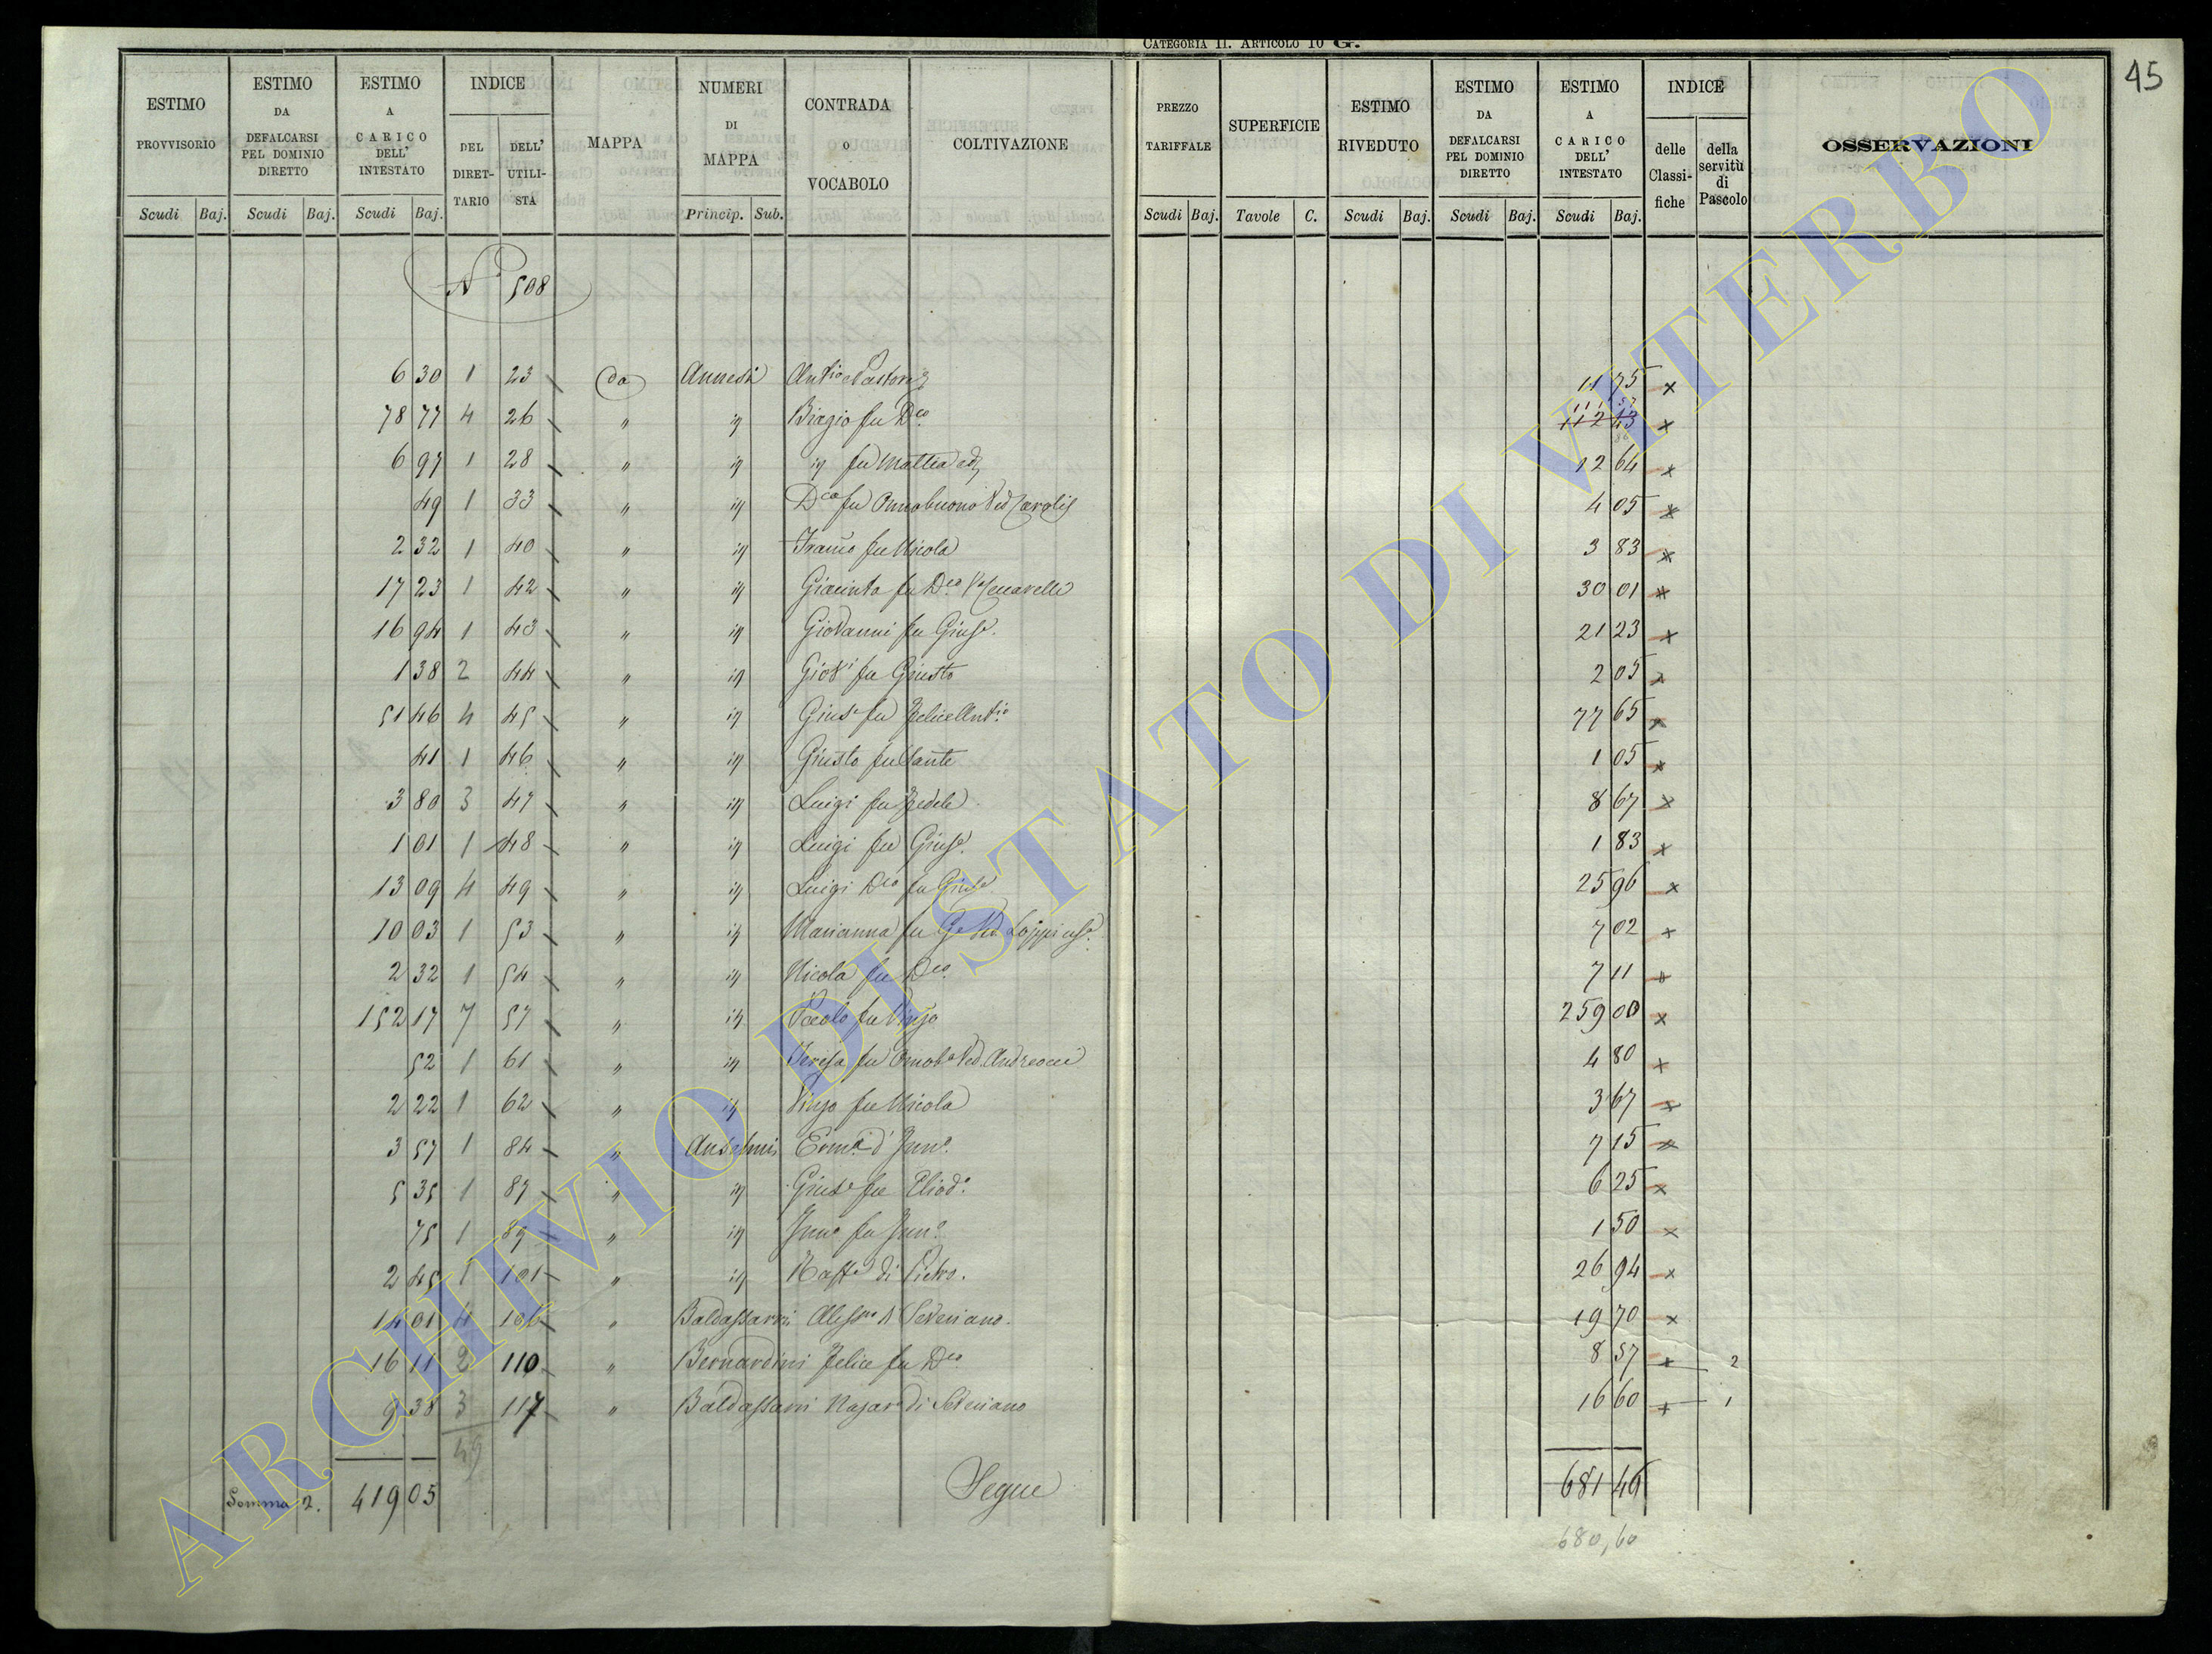 CATEGORIA II. ARTICOLO 10 G.
45
ESTIMO PROVVISORIO Scudi Baj.
ESTIMO DA DEFALCARSI PEL DOMINIO DIRETTO Scudi Baj.
ESTIMO A CARICO DELL' INTESTATO Scudi Baj.
INDICE DEL DIRETTARIO DELL' UTILISTA
MAPPA
NUMERI DI MAPPA Princip. Sub.
CONTRADA o VOCABOLO
COLTIVAZIONE
PREZZO TARIFFALE Scudi Baj.
SUPERFICIE Tavole C.
ESTIMO RIVEDUTO Scudi Baj.
ESTIMO DA DEFALCARSI PEL DOMINIO DIRETTO Scudi Baj.
ESTIMO A CARICO DELL' INTESTATO Scudi Baj.
INDICE delle Classifiche della servitù di Pascolo
OSSERVAZIONI
N° 508
6 30 1 23 da Annesi Antio 11 75 x
78 77 4 26 " ig Biagio fu Dco 112 43 111 57 x
6 97 1 28 " ig ig fu Mattia 12 64 x
49 1 33 " ig Dca fu Omobuono Ved 4 05 x
2 32 1 40 " ig Franco fu Nicola 3 83 x
17 23 1 42 " ig Giacinta fu Dco 30 01 x
16 94 1 43 " ig Giovanni fu Giuse. 21 23 x
1 38 2 44 " ig Giovi fu Giusto 2 05 x
51 46 4 45 " ig Giuse fu Felice Antio 77 65 x
41 1 46 " ig Giusto fu Sante 1 05 x
3 80 3 47 " ig Luigi fu Fedele 8 67 x
1 01 1 48 " ig Luigi fu Giuse. 1 83 x
13 09 4 49 " ig Luigi Dco fu Giuse 25 96 x
10 03 1 53 " ig Marianna fu 7 02 x
2 32 1 54 " ig Nicola fu Dco. 7 11 x
152 17 7 57 " ig Paolo fu 259 00 x
52 1 61 " ig Teresa fu Omobo Ved. Andreocci 4 80 x
2 22 1 62 " ig fu Nicola 3 67 x
3 57 1 84 " Anselmi 7 15 x
5 35 1 87 " ig Giuse fu Eliodo. 6 25 x
75 1 89 " ig 1 50 x
2 45 1 101 " ig Raffe di Pietro. 26 94 x
14 01 4 106 " Baldassarri Alessro di Severiano. 19 70 x
16 11 2 110 " Bernardini Felice fu Dco 8 57 x 2
9 38 3 117 " Baldassarri Nazaro di Severiano 16 60 x 1
49
Somma 2. 419 05 Segue 681 46
680,60
ARCHIVIO DI STATO DI VITERBO